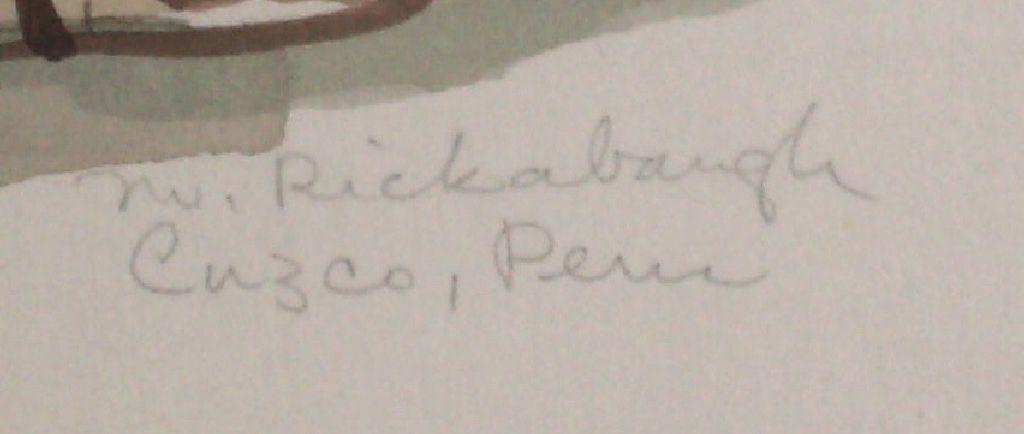 M. Rickabaugh
Cuzco, Peru